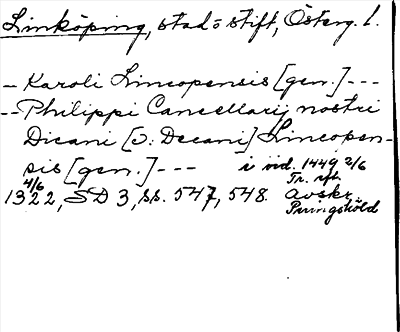 Linköping, stad o stift, Österg. l.
— Karoli Lincopensis [gen.] ---
-- Philippi Cancellarij nostri
Dicani [ɔ: Decani] Lincopen-
sis [gen.] --- i vid. 1449 2/6
4/6 Tr. eft.
1322, SD 3, ss. 547, 548. Avskr.
Pvringsköld